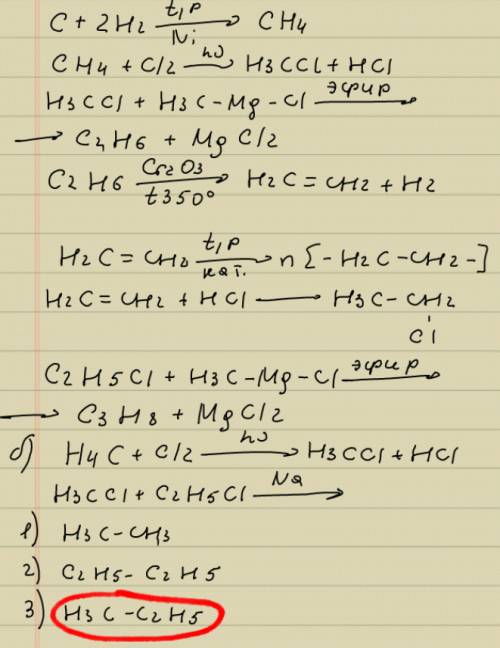 C + 2H2 t,p Ni → CH4
CH4 + Cl2 hν → H3CCl + HCl
H3CCl + H3C-Mg-Cl эфир →
→ C2H6 + MgCl2
C2H6 Cr2O3 t350° → H2C=CH2 + H2
H2C=CH2 t,p кат. → n[-H2C-CH2-]
H2C=CH2 + HCl → H3C-CH2
Cl
C2H5Cl + H3C-Mg-Cl эфир →
→ C3H8 + MgCl2
б) H4C + Cl2 hν → H3CCl + HCl
H3CCl + C2H5Cl Na →
1) H3C-CH3
2) C2H5-C2H5
3) H3C-C2H5